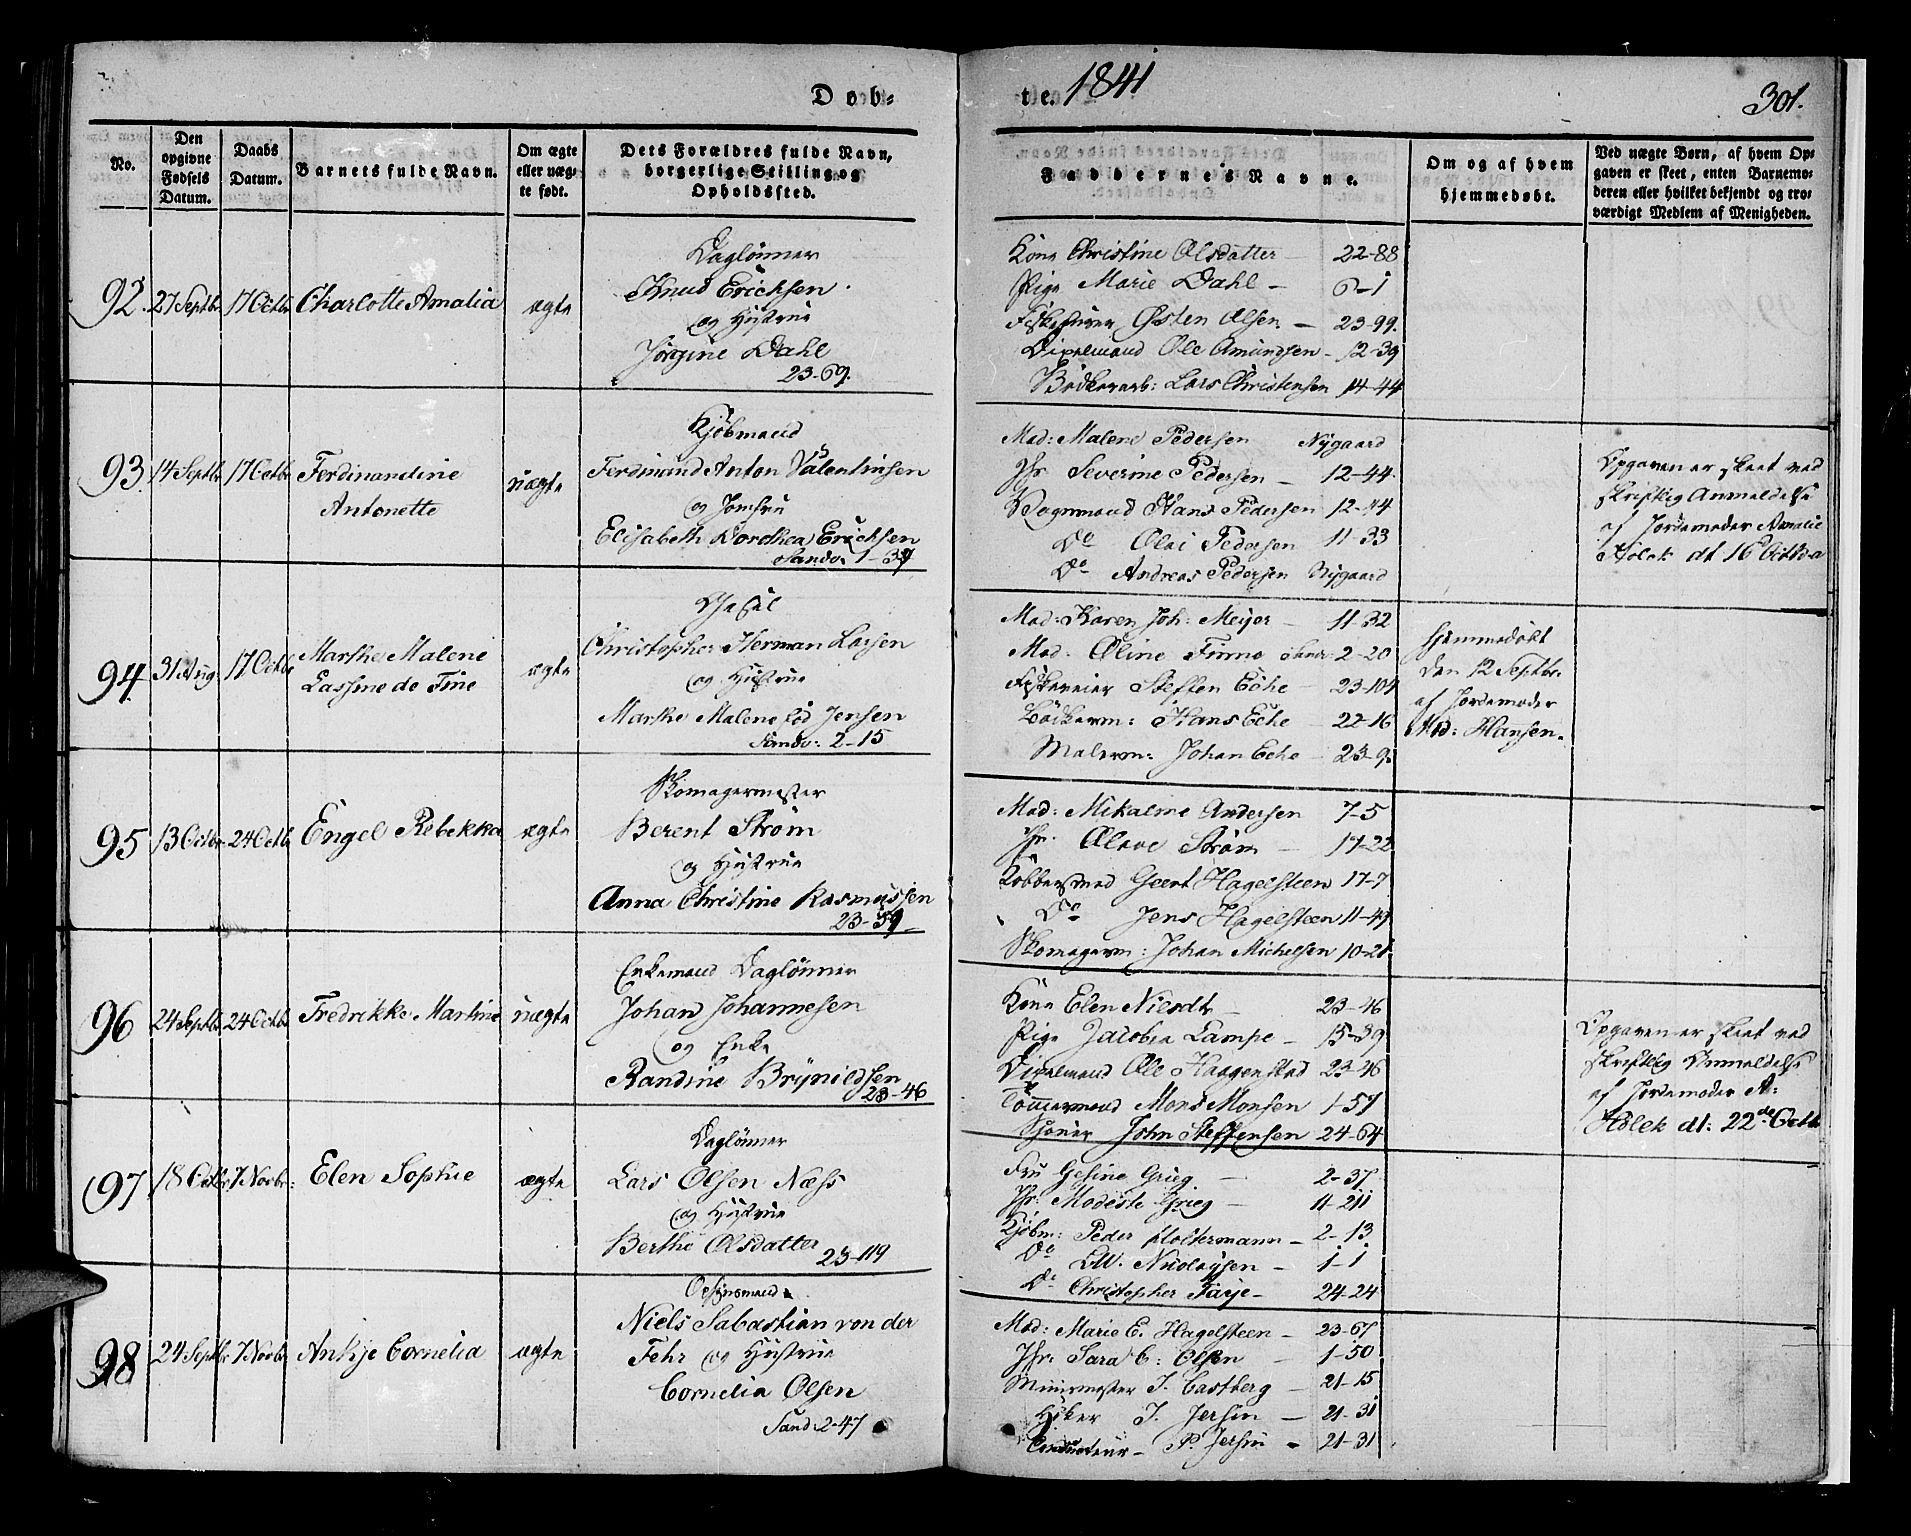 Døb-
te. 1841
301.
No.
Den opgivne Fødsels Datum.
Daabs Datum.
Barnets fulde Navn.
Om ægte eller uægte født.
Dets Forældres fulde Navn, borgerlige Stilling og Opholdssted.
Faddernes Navne.
Om og af hvem hjemmedøbt.
Ved uægte Børn, af hvem Opgaven er skeet, enten Barnemoderen eller hvilket bekjendt og troværdigt Medlem af Menigheden.
92. 27 Septbr 17 Octbr Charlotte Amalia ægte
Daglönner
Knud Erichsen
og Hustrue
Jörgine Dahl
23-69.
Kone Christine Olsdatter 22-88
Pige Marie Dahl - 6-1
Östen Olsen - 23-99.
Ole Amundsen - 12-39
Bödkersv: Lars Christensen 14-44
93 14 Septbr 17 Octbr Ferdinandine
Antonette
uægte
Kjöbmand
Ferdinand Anton Valentinsen
og Jomfru
Elisabeth Dorthea Erichsen
Sandv. 1-37
Mad: Malene Pedersen Nygaard
Jfr Severine Pedersen - 12-44.
Vognmand Hans Pedersen 12-44
Do Olai Pedersen 11-33
Do Andreas Pedersen Nygaard
Opgaven er skeet ved
skriftlig Anmeldelse
af Jordemoder Amalie
Holck dt 16 Octbr
94 31 Aug 17 Octbr Marthe Malene
Lassine de Fine
ægte
Christopher Herman Lassen
og Hustrue
Marthe Malene föd Jensen
Sandv: 2-15
Mad: Karen Joh: Meijer - 11-32
Mad. Oline Finne Sandv: 2-20
Steffen Eche - 23-104
Bödkerm: Hans Eche - 22-16
Malerm: Johan Eche - 23-9
Hjemmedöbt
den 12 Septbr.
af Jordemoder
Mad: Hansen.
95 13 Octbr 24 Octb Engel Rebekka ægte
Skomagermester
Berent Ström
og Hustrue
Anna Christine Rasmussen
23-59
Mad: Mikaline Andersen 7-5
Jfr. Olave Ström - 17-22
Kobbersmed Geert Hagelsteen 17-7
Do Jens Hagelsteen 11-49
Skomagerm: Johan Michelsen 10-21
96 24 Septbr 24 Octbr Fredrikke Martine uægte
Enkemand Daglönner
Johan Johannesen
og Enke
Randine Brÿnildsen
23-46
Kone Elen Nielsdtr - 23-46
Pige Jacobia Lampe - 15-39
Ole Haagenstad 23-46
Tömmermand Mons Monsen 1-57
John Steffensen 24-64
Opgaven er skeet ved
skriftlig Anmeldelse
af Jordemoder A:
Holck dt: 22de Octb
97 18 Octbr 7 Novbr: Elen Sophie ægte
Daglönner
Lars Olsen Næss
og Hustrue
Berthe Olsdatter
23-119
Fru Gesine Grieg - 2-37
Jfr: Modeste Grieg - 11-211
Kjöbm: Peder Holtermann - 2-13
Do Nicolaÿsen - 1-1
Do Christopher Farje - 24-24
98 24 Septbr 7 Novbr Ankje Cornelia ægte
Niels Sabastian von der
Fehr og Hustrue
Cornelia Olsen
Sand: 2-47
Mad: Marie E. Hagelsteen - 23-67
Jfr: Sara C: Olsen - 1-50
Muurmester J. Castberg - 21-15
Høker J. Jersin - 21-31
Conducteur - P. Jersin - 21-31